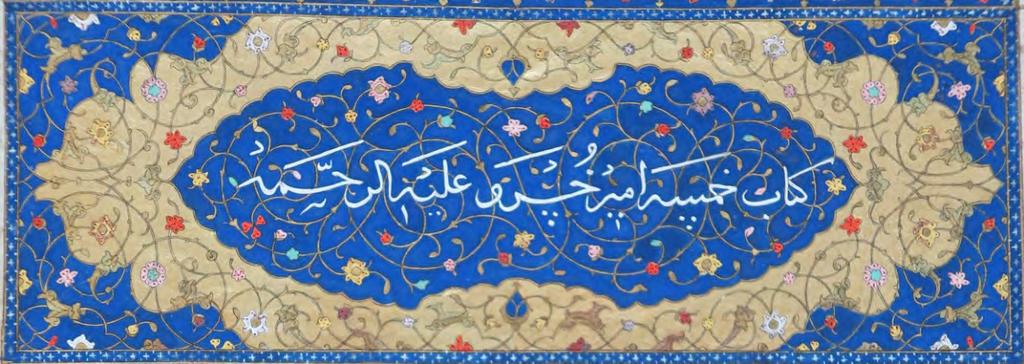 کتاب خمسه امیر خسرو علیه الرحمه